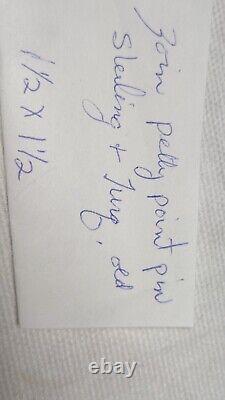 Zoin petty point pin
Sterling + Turq, old
1 1/2 X 1 1/2
ebay